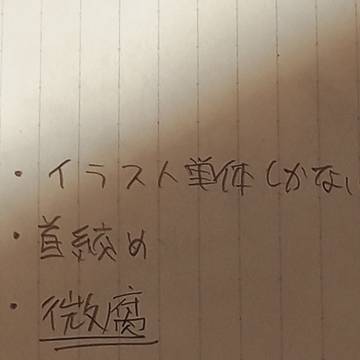 ・イラスト単体しかない
・首絞め
・微腐